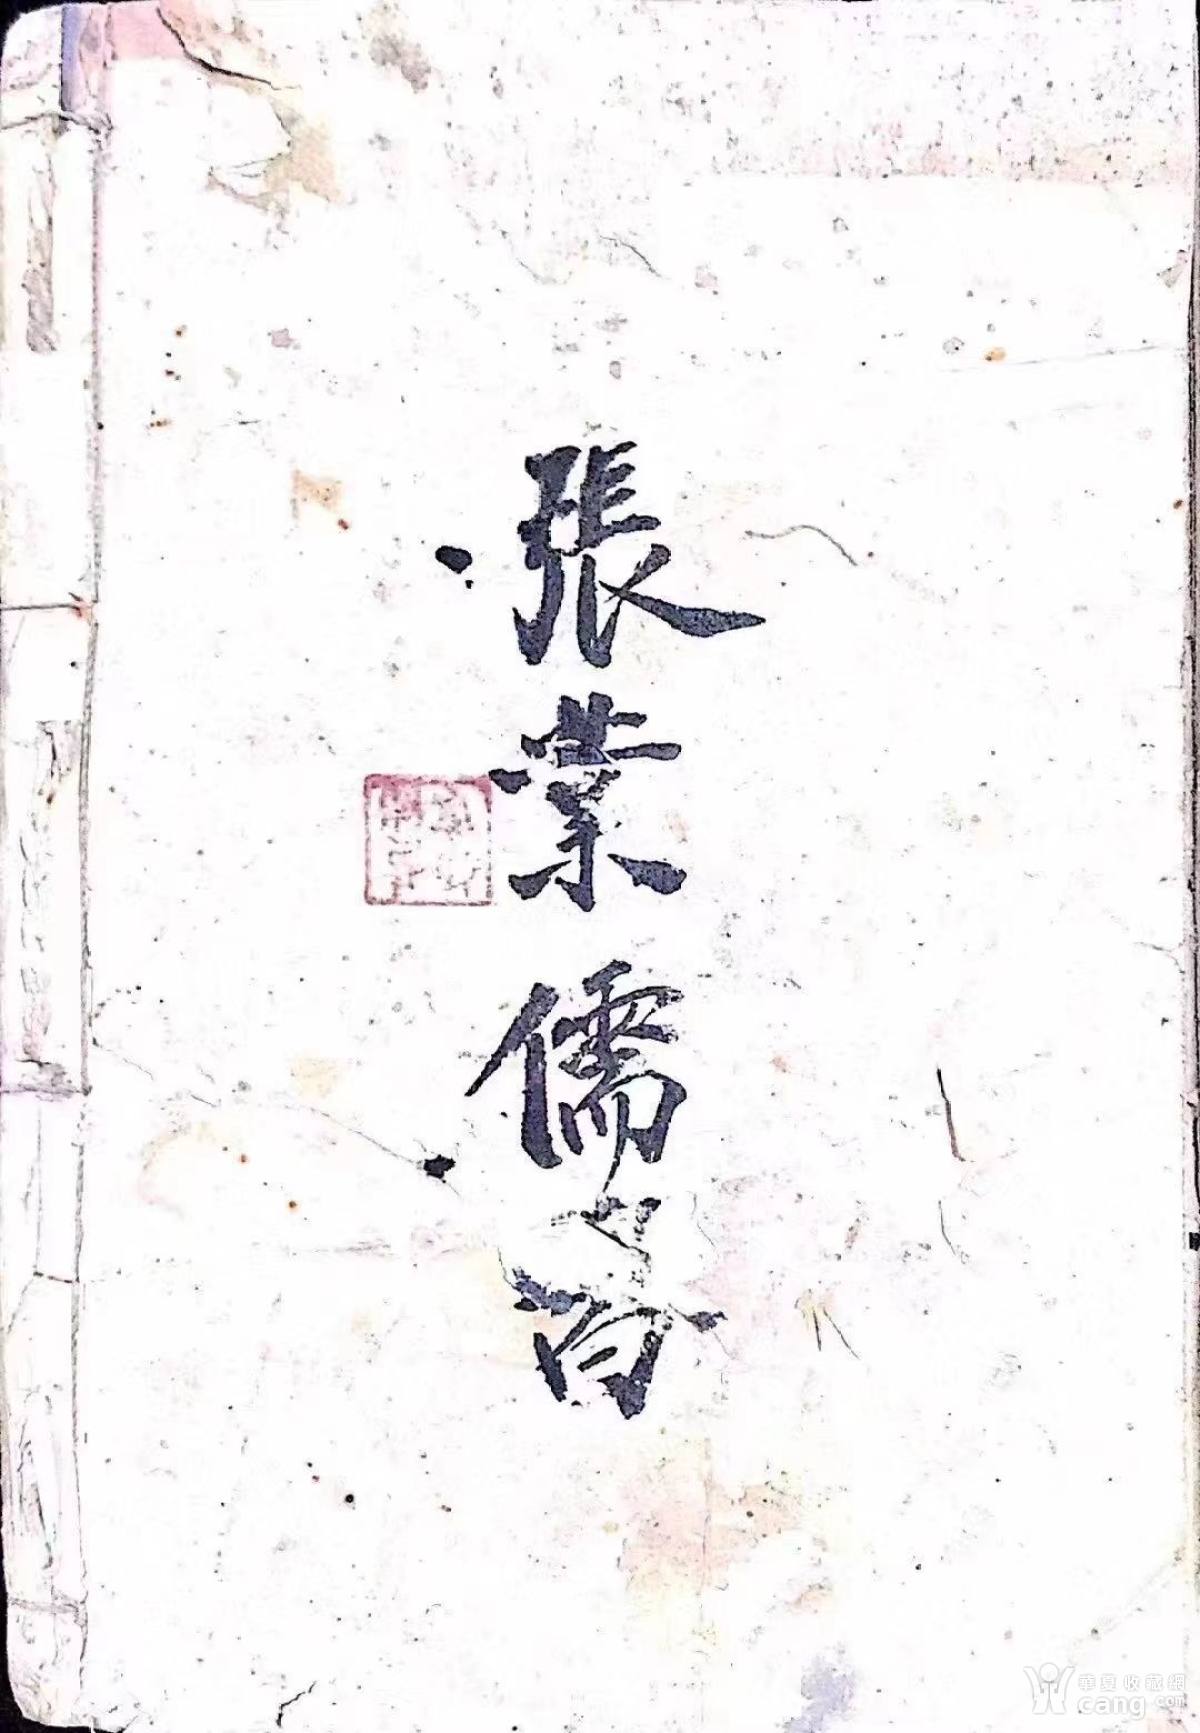 張業儒習
華夏收藏網
cang.com